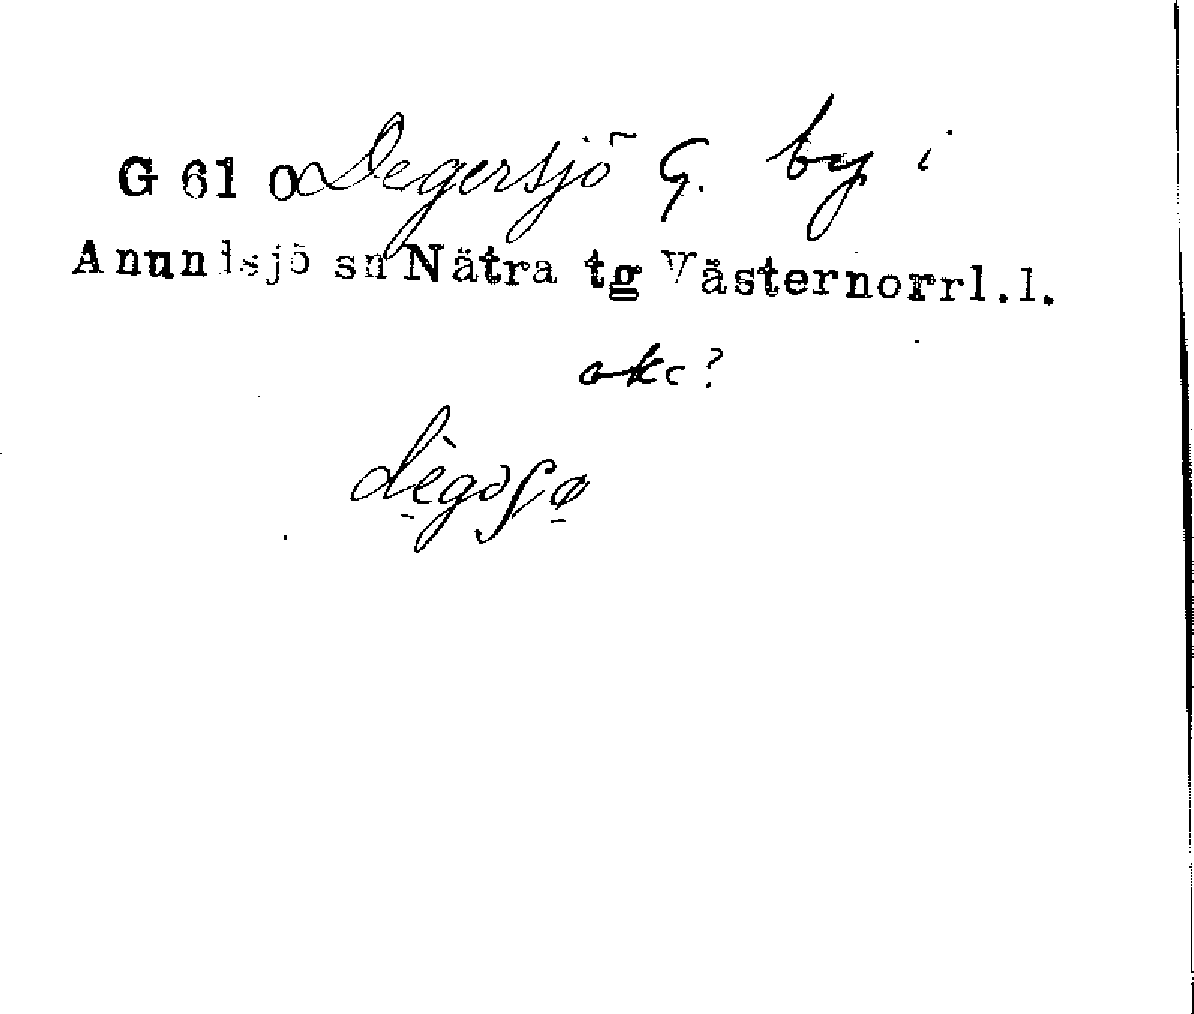 G 61 o Degersjö G. by i
Anundsjö sn Nätra tg Västernorrl.l.
akc?